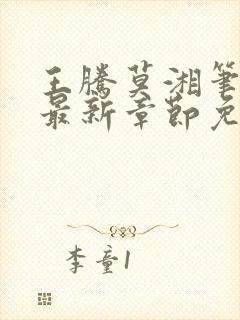 王騰莫湘筆
最新章節免
李童1